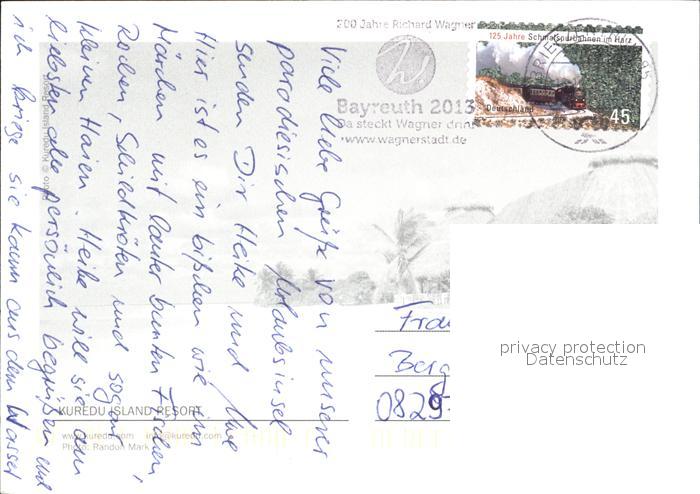 200 Jahre Richard Wagner
Bayreuth 2013
Da steckt Wagner drin!
www.wagnerstadt.de
125 Jahre Schmalspurbahnen im Harz
Deutschland
45
Viele liebe Grüße von unserer
paradiesischen Urlaubsinsel
sende Dir Heike und
Hier ist es ein bißchen wie im
Märchen mit lauter bunten Fischen,
Rochen, Schildkröten und sogar
kleinen Haien. Heike will sie am
liebsten alle persönlich begrüßen und
ich kriege sie kaum aus dem Wasser
Frau
Berg
0829
privacy protection
Datenschutz
Photo © Kuredu Island Resort
KUREDU ISLAND RESORT
www.kuredu.com info@kuredu.com
Photo: Randon Mark